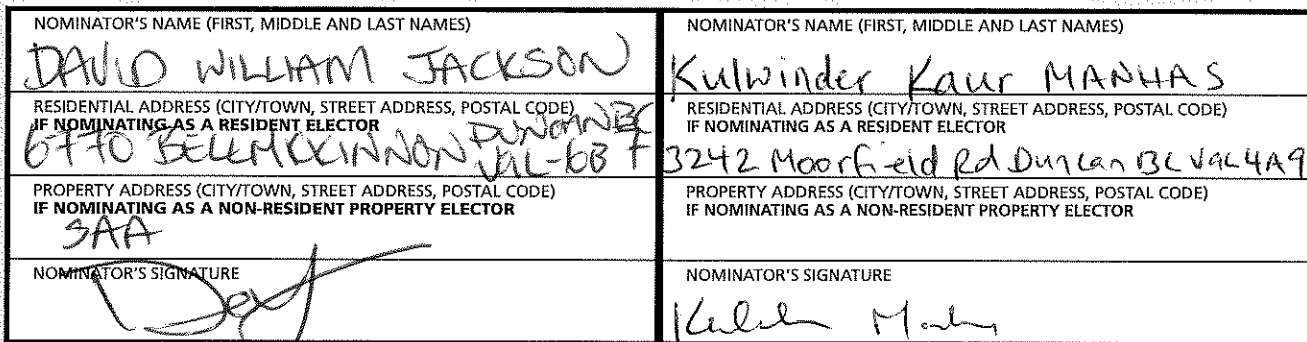 NOMINATOR'S NAME (FIRST, MIDDLE AND LAST NAMES)
DAVID WILLIAM JACKSON
RESIDENTIAL ADDRESS (CITY/TOWN, STREET ADDRESS, POSTAL CODE)
IF NOMINATING AS A RESIDENT ELECTOR
6770 BELLMCKINNON DUNCAN BC
PROPERTY ADDRESS (CITY/TOWN, STREET ADDRESS, POSTAL CODE)
IF NOMINATING AS A NON-RESIDENT PROPERTY ELECTOR
SAA
NOMINATOR'S SIGNATURE
NOMINATOR'S NAME (FIRST, MIDDLE AND LAST NAMES)
Kulwinder Kaur MANHAS
RESIDENTIAL ADDRESS (CITY/TOWN, STREET ADDRESS, POSTAL CODE)
IF NOMINATING AS A RESIDENT ELECTOR
3242 Moorfield Rd Duncan BC V9L4A9
PROPERTY ADDRESS (CITY/TOWN, STREET ADDRESS, POSTAL CODE)
IF NOMINATING AS A NON-RESIDENT PROPERTY ELECTOR
NOMINATOR'S SIGNATURE